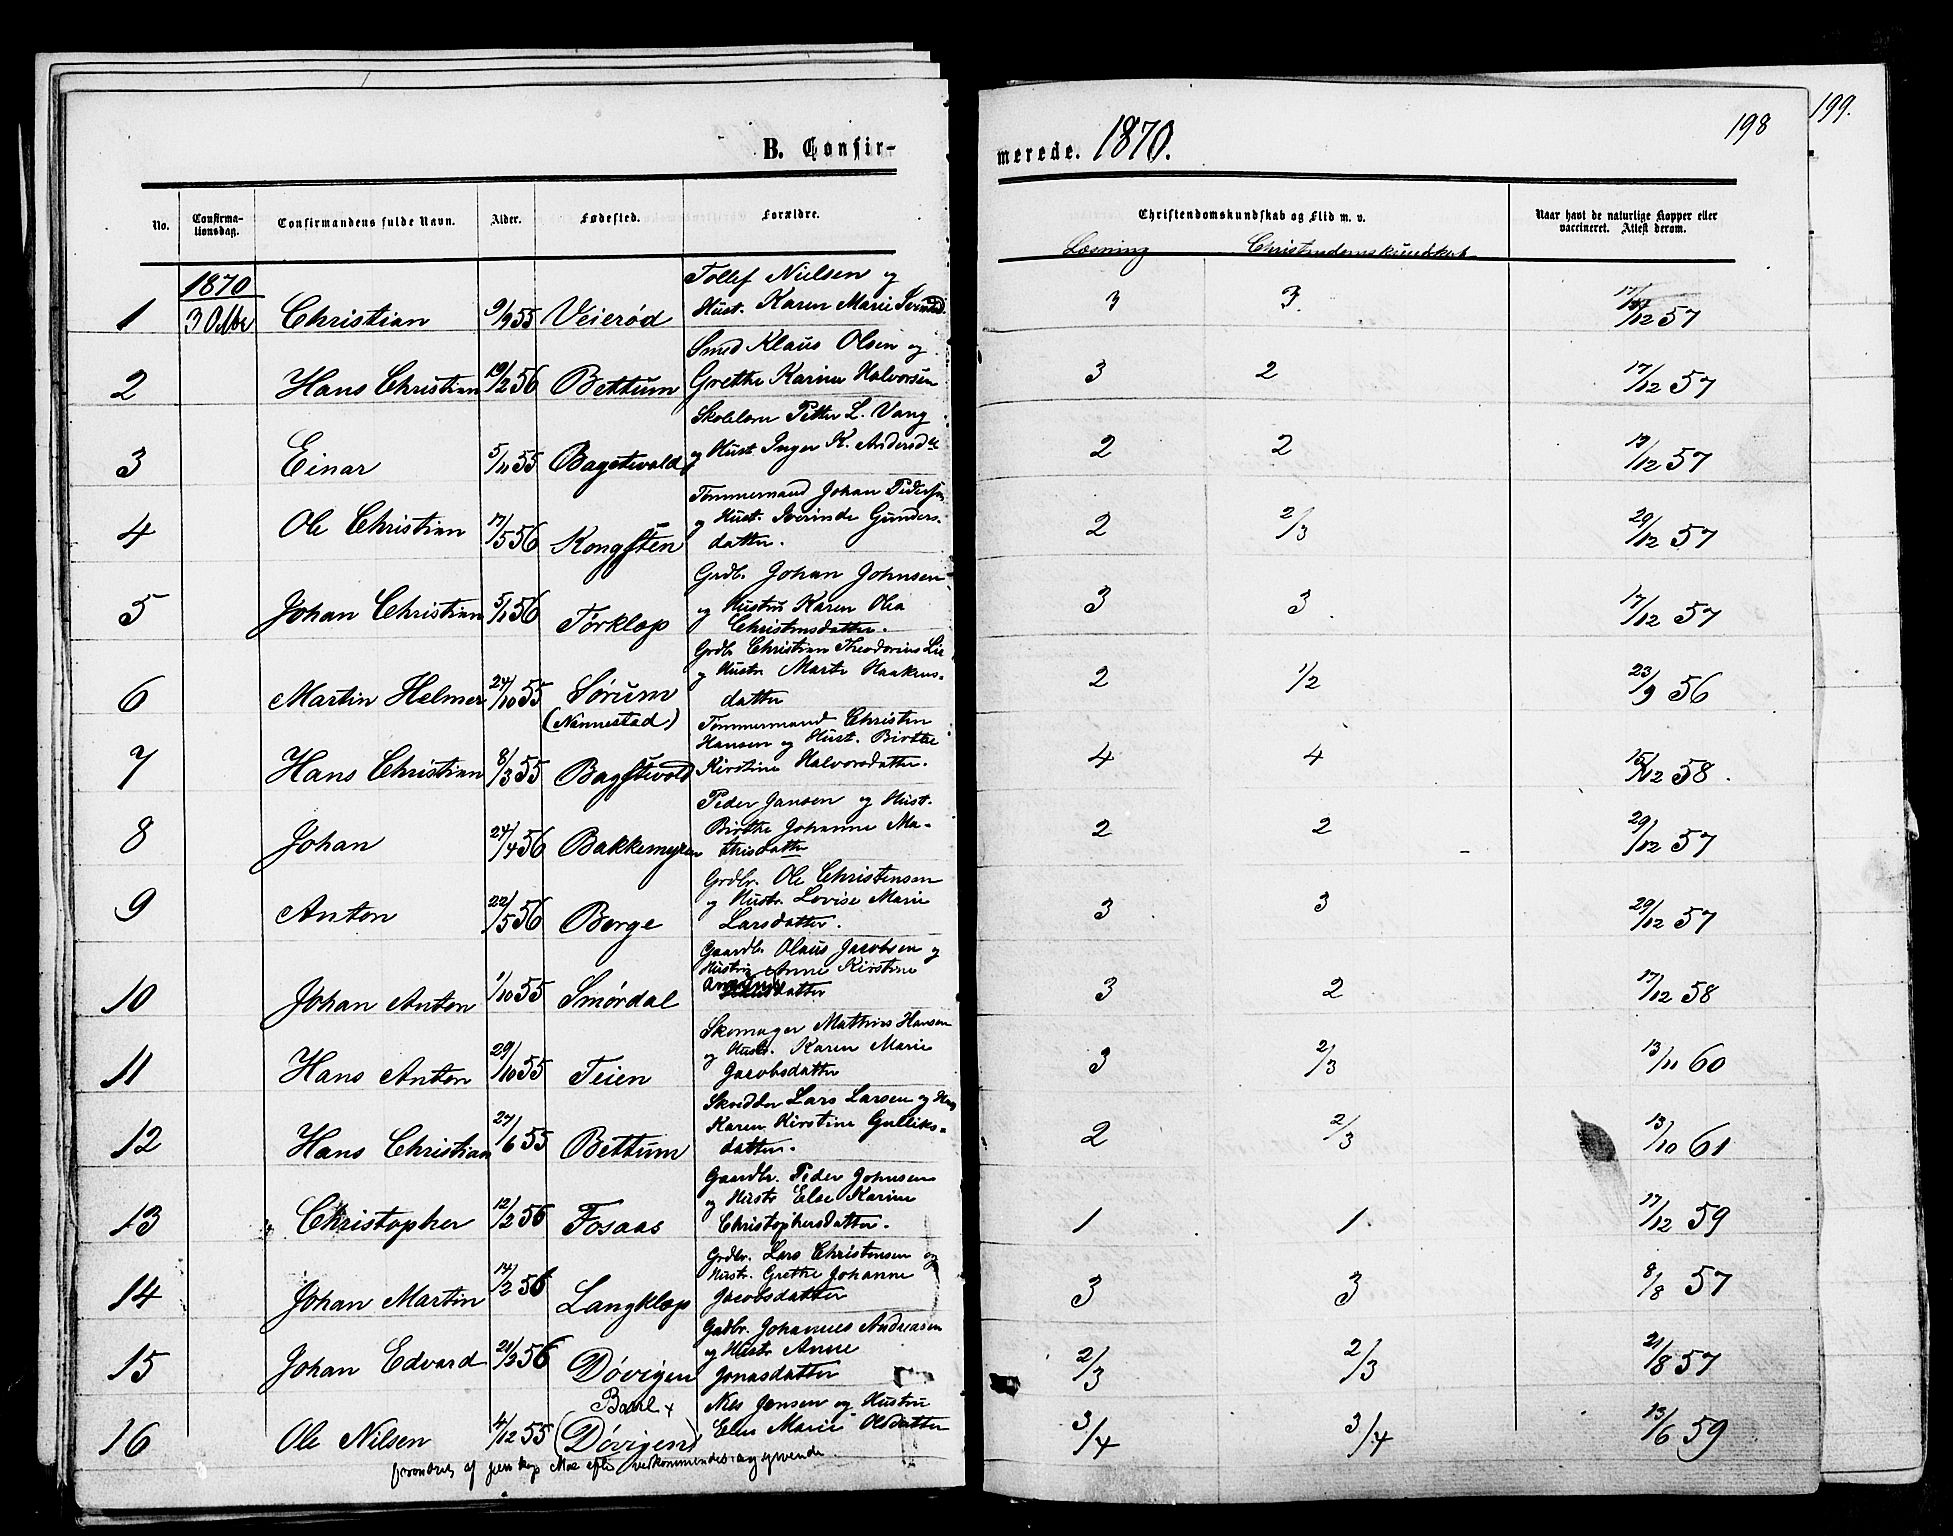 B. Confir-
merede. 1870.
198
199.
No.
Confirma-
tionsdag.
Confirmandens fulde Navn.
Alder.
Fødested.
Forældre.
Christendomskundskab og Flid m. v.
Naar havt de naturlige Kopper eller
vaccineret. Attest derom.
Læsning
Christendomskundskab
1870
1 3 Octbr Christian 9/9 55 Veierød
Tollef Nielsen og
Hust. Karen Marie
3 3. 17/12 57
2 Hans Christian 19/2 56 Bettum
Smed Klaus Olsen og
Grethe Karine Halvorsen
3 2 17/12 57
3 Einar 5/11 55 Bagstevold
Skolelærer Petter L. Vang
og Hust. Inger K. Andersd
2 2 19/12 57
4 Ole Christian 17/5 56 Kongsten
Tømmermand Johan Pedersen
og Hust. Iverinde Gunders-
datter.
2 2/3 29/12 57
5 Johan Christian 5/1 56 Tørklop
Grdb. Johan Johnsen
og Hustru Karen Olea
Christensdatter.
3 3 17/12 57
6 Martin Helmer 24/10 55 Sørum
(Nannestad)
Grdb. Christian Theodorius Lie
og Hustr Marte Haakens-
datter
2 1/2 23/9 56
7 Hans Christian 8/3 55 Bagstevold
Tømmermand Christen
Hansen og Hust. Birthe
Kirstine Halvorsdatter.
4 4 15/12 58.
8 Johan 24/4 56 Bakkemyren
Peder Jansen og Hust.
Birthe Johanne Ma-
thisdatter
2 2 29/12 57
9 Anton 22/5 56 Berge
Grdbr. Ole Christensen
og Hustr Lovise Marie
Larsdatter.
3 3 29/12 57
10 Johan Anton 1/10 55 Smørdal
Gaardb. Olaus Jacobsen og
Hustru Anne Kirstine
datter
3 2 17/12 58
11 Hans Anton 29/10 55 Teien
Skomager Mathias Hansen
og Hustr. Karen Marie
Jacobsdatter
3 2/3 13/11 60
12 Hans Christian 27/6 55 Bettum
Skredder Lars Larsen og Hust
Karen Kirstine Gulliks-
datter.
2 2/3 13/10 61
13 Christopher 12/2 56 Fosaas
Gaardbr. Peder Johnsen
og Hustr Else Karine
Christophersdatter.
1 1 17/12 59
14 Johan Martin 14/2 56 Langklop
Grdbr. Lars Christensen og
Hustr. Grethe Johanne
Jacobsdatter
3 3 8/8 57
15 Johan Edvard 21/2 56 Døvigen
Gadbr. Johannes Andreasen
og Hustr Anne
Jonasdatter
2/3 2/3 21/8 57
16 Ole Nilsen 4/12 55 (Døvigen)
Nils Jensen og Hustru
Elen Marie Olsdatter
3/4 3/4 13/6 59